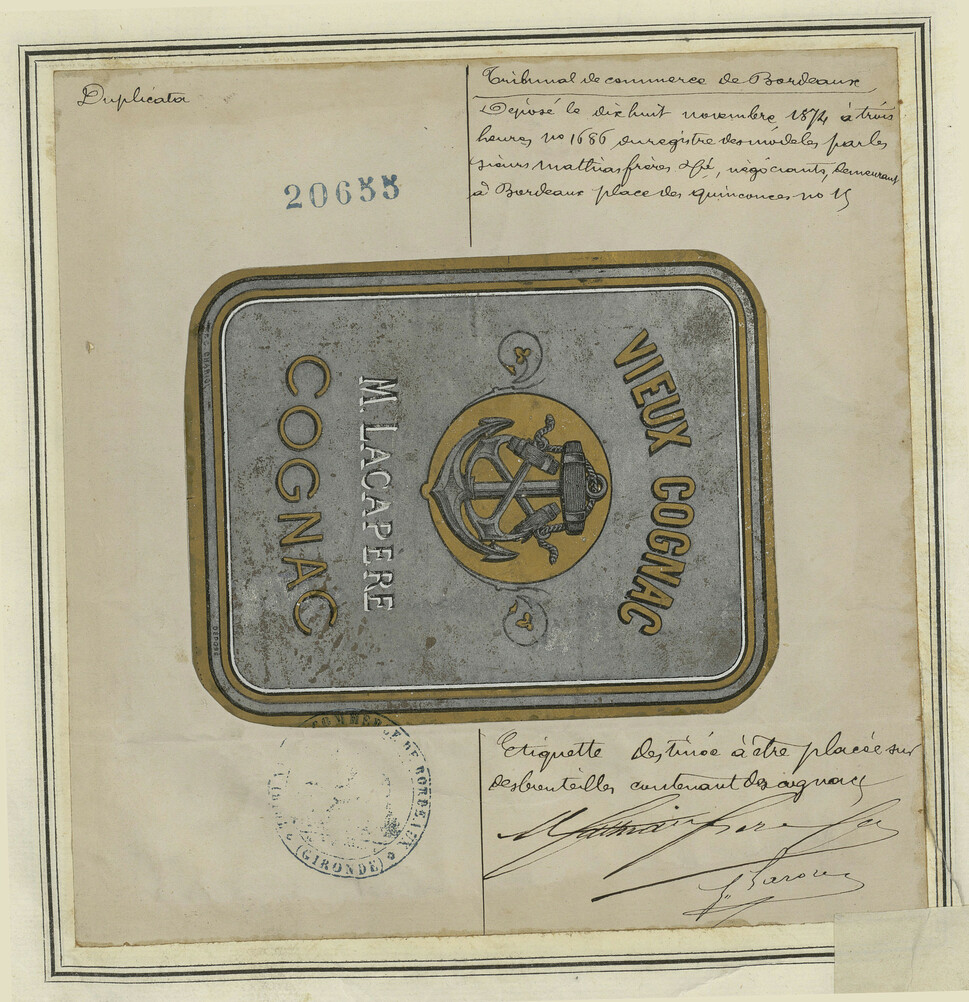 Duplicata
Tribunal de commerce de Bordeaux
Déposé le dix huit novembre 1874 à trois
heures no 1686 du registre des modèles par les
sieurs Mathias frères & Cie, négociants, demeurant
à Bordeaux place des quinconces no 15
20655
VIEUX COGNAC
M. LACAPERE
COGNAC
DEPOSÉ
COMMERCE DE BORDEAUX
(GIRONDE)
Etiquette destinée à être placée sur
des bouteilles contenant des cognacs